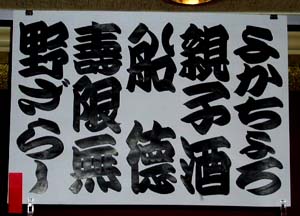 よかちょろ
親子酒
船徳
壽限無
野ざらし